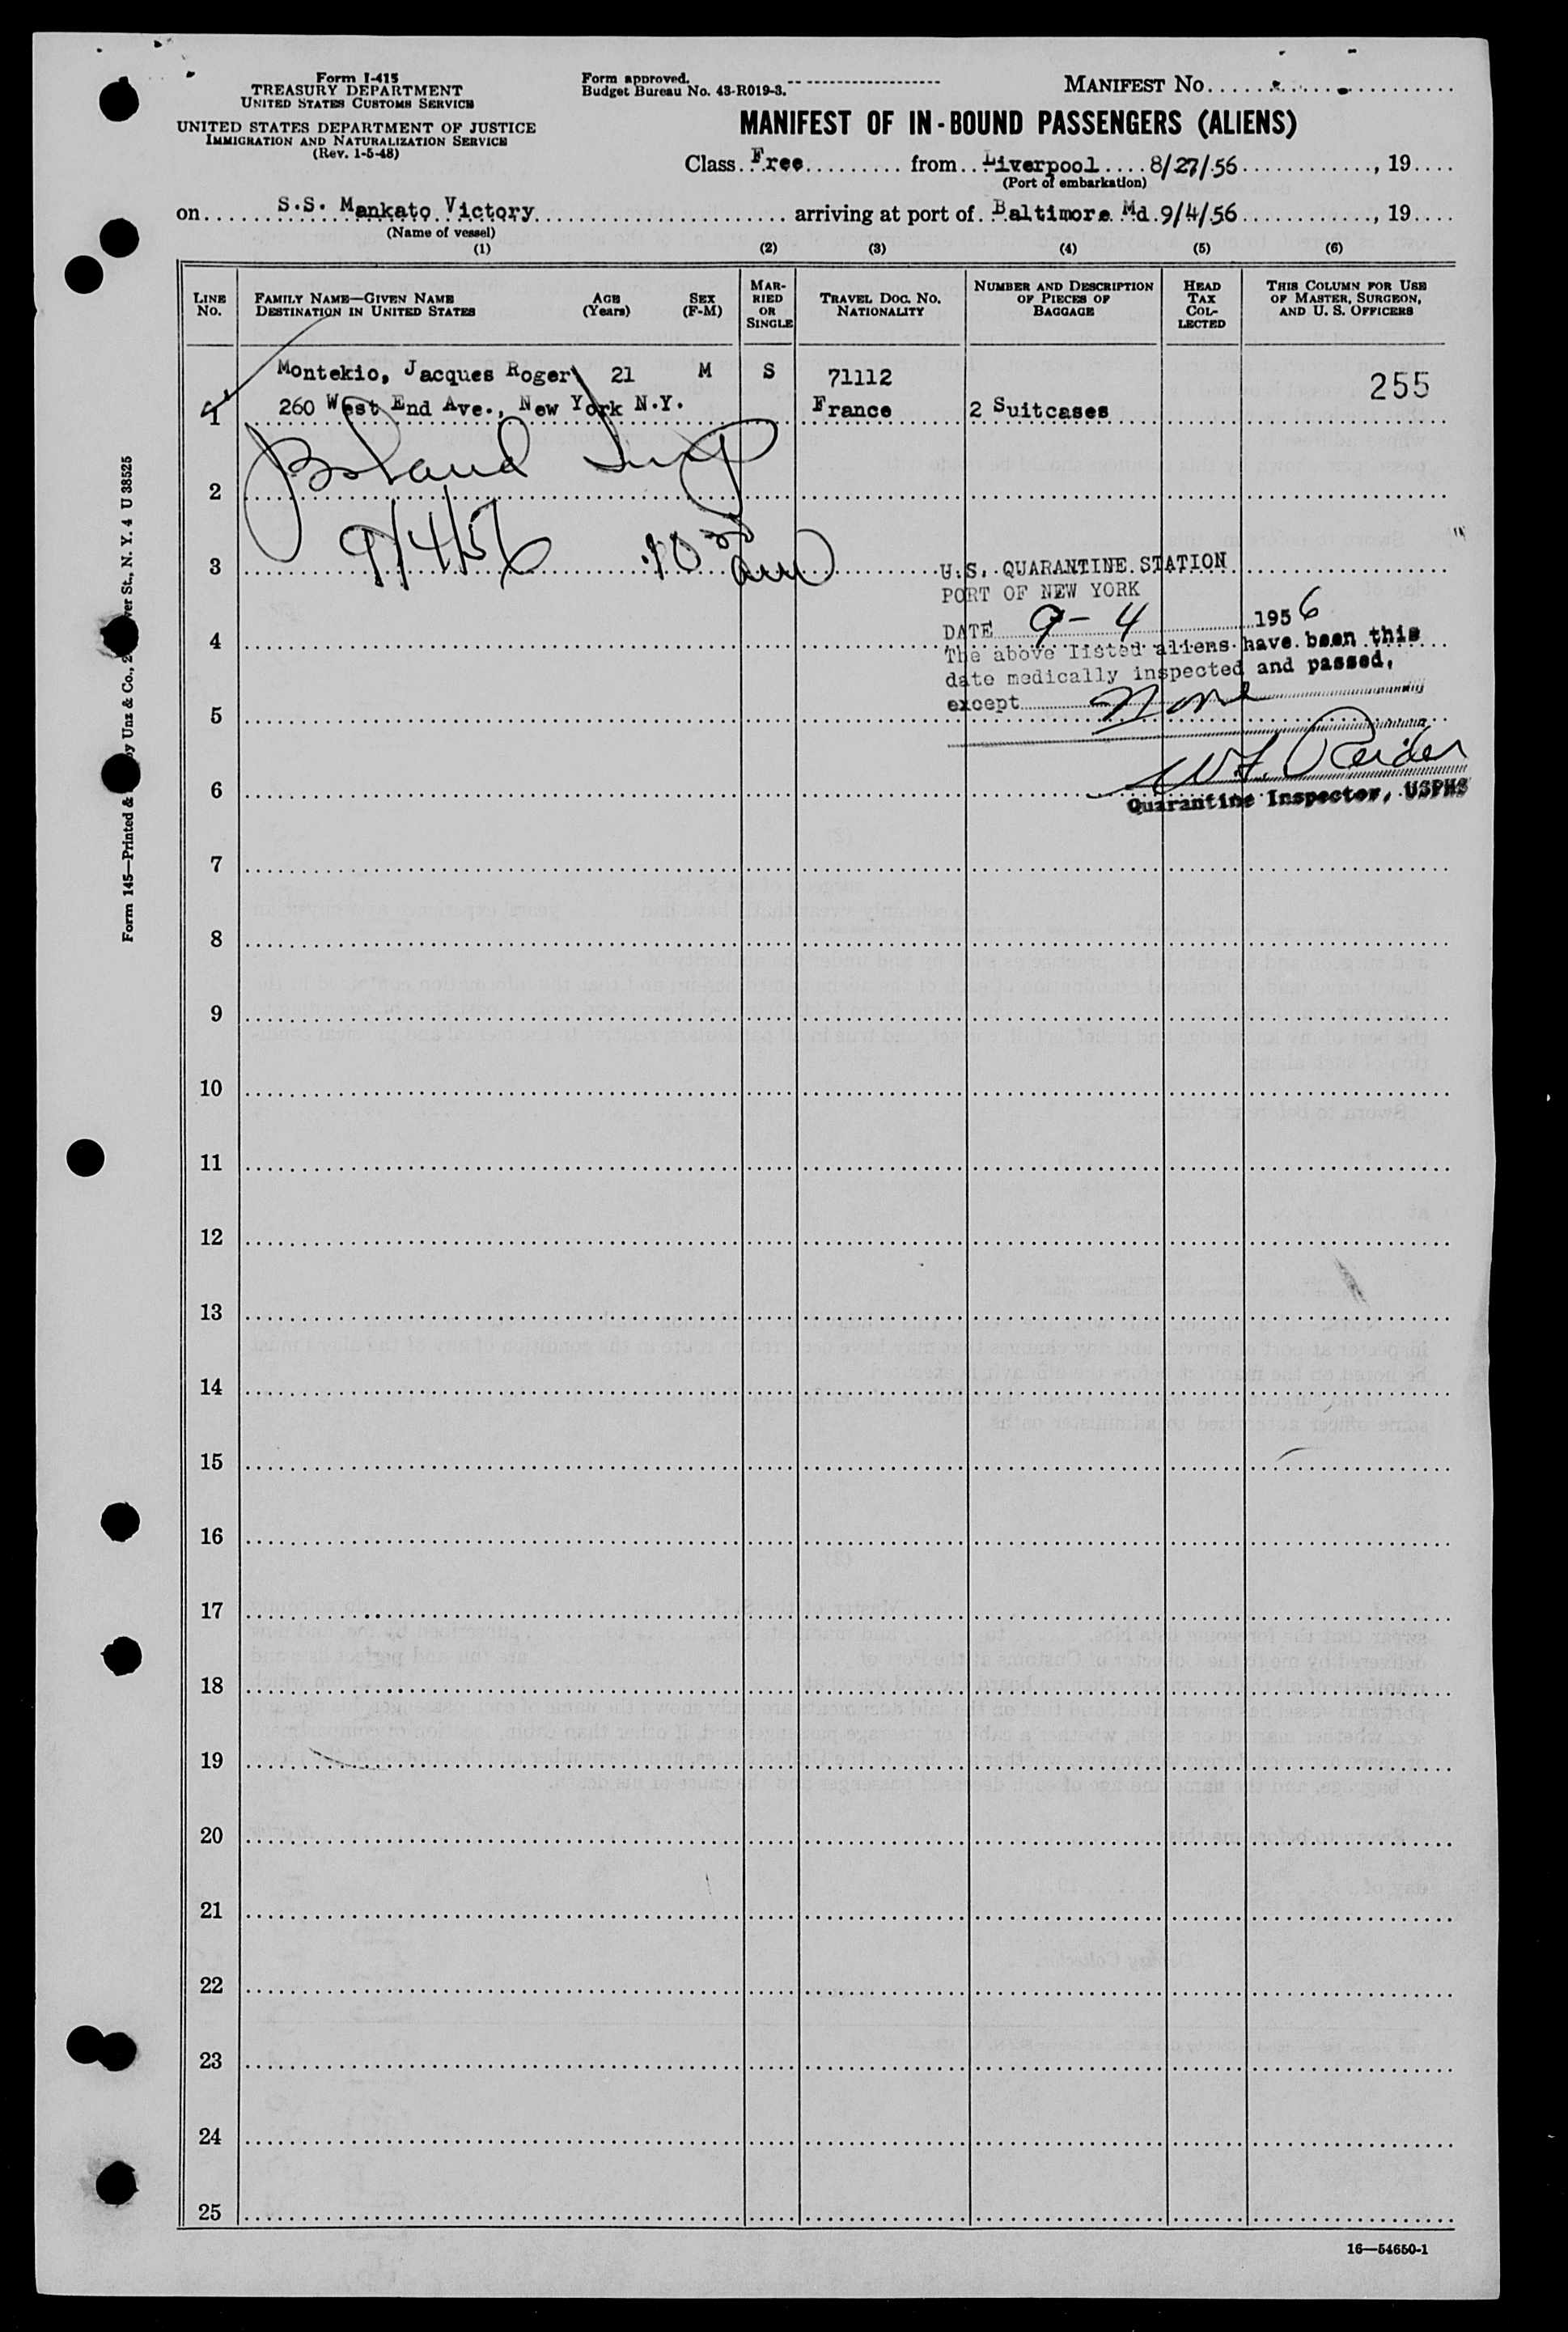 Form I-415
TREASURY DEPARTMENT
UNITED STATES CUSTOMS SERVICE
UNITED STATES DEPARTMENT OF JUSTICE
IMMIGRATION AND NATURALIZATION SERVICE
(Rev. 1-5-48)
Form approved.
Budget Bureau No. 43-R019-3.
MANIFEST No.
MANIFEST OF IN-BOUND PASSENGERS (ALIENS)
Class Free from Liverpool 8/27/56, 19
(Port of embarkation)
on S.S. Mankato Victory arriving at port of Baltimore Md 9/4/56, 19
(Name of vessel)
(1) (2) (3) (4) (5) (6)
LINE NO.
FAMILY NAME—GIVEN NAME DESTINATION IN UNITED STATES
AGE (Years)
SEX (F-M)
MARRIED OR SINGLE
TRAVEL DOC. NO. NATIONALITY
NUMBER AND DESCRIPTION OF PIECES OF BAGGAGE
HEAD TAX COLLECTED
THIS COLUMN FOR USE OF MASTER, SURGEON, AND U. S. OFFICERS
Montekio, Jacques Roger 21 M S 71112 255
1 260 West End Ave., New York N.Y. France 2 Suitcases
2
9/4/56 10 30 am
3
U.S. QUARANTINE STATION
PORT OF NEW YORK
DATE 9-4 1956
4
The above listed aliens have been this
date medically inspected and passed,
except None
5
Quarantine Inspector, USPHS
6
7
8
9
10
11
12
13
14
15
16
17
18
19
20
21
22
23
24
25
16—54650-1
Form 145—Printed & by Unz & Co., St., N. Y. 4 U 38525